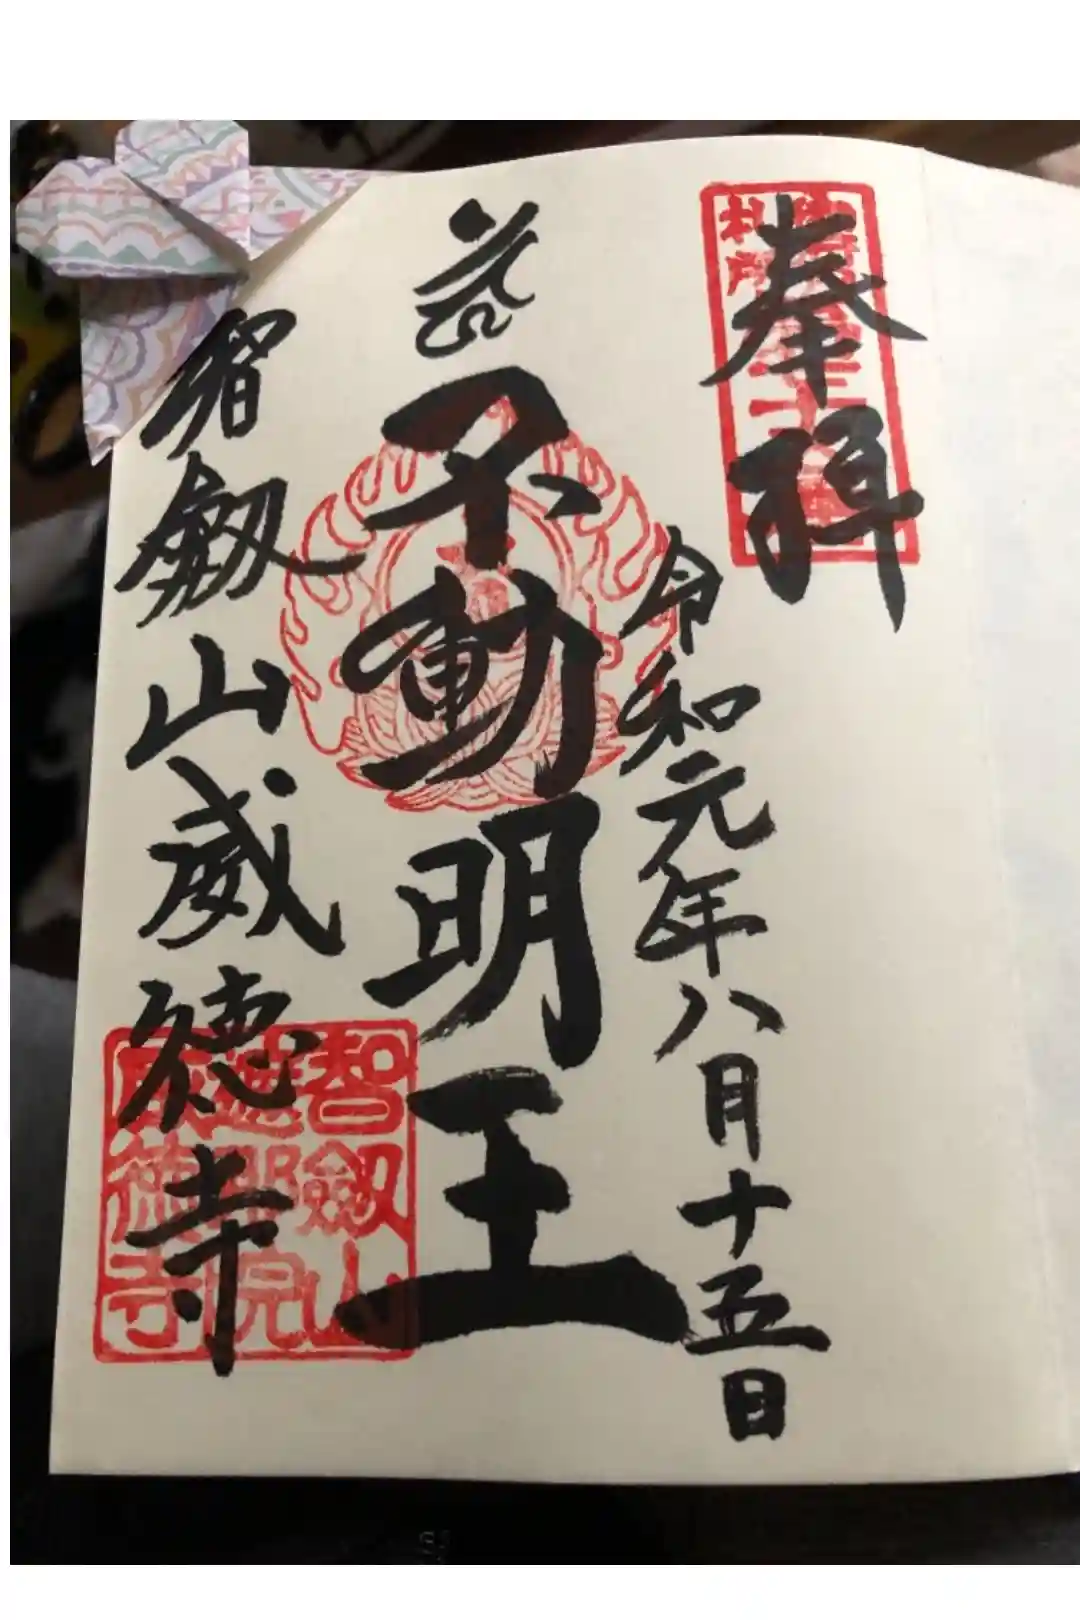 奉拝
令和元年八月十五日
不動明王
智劔山威徳寺
智劔山
遮那院
威徳寺